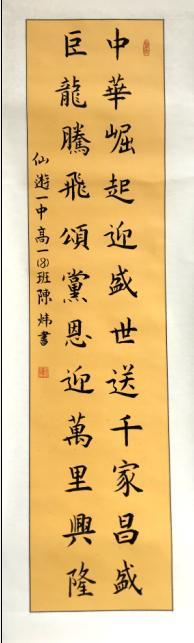 中華崛起迎盛世送千家昌盛
巨龍騰飛頌黨恩迎萬里興隆
仙遊一中高一⑶班陳煒書